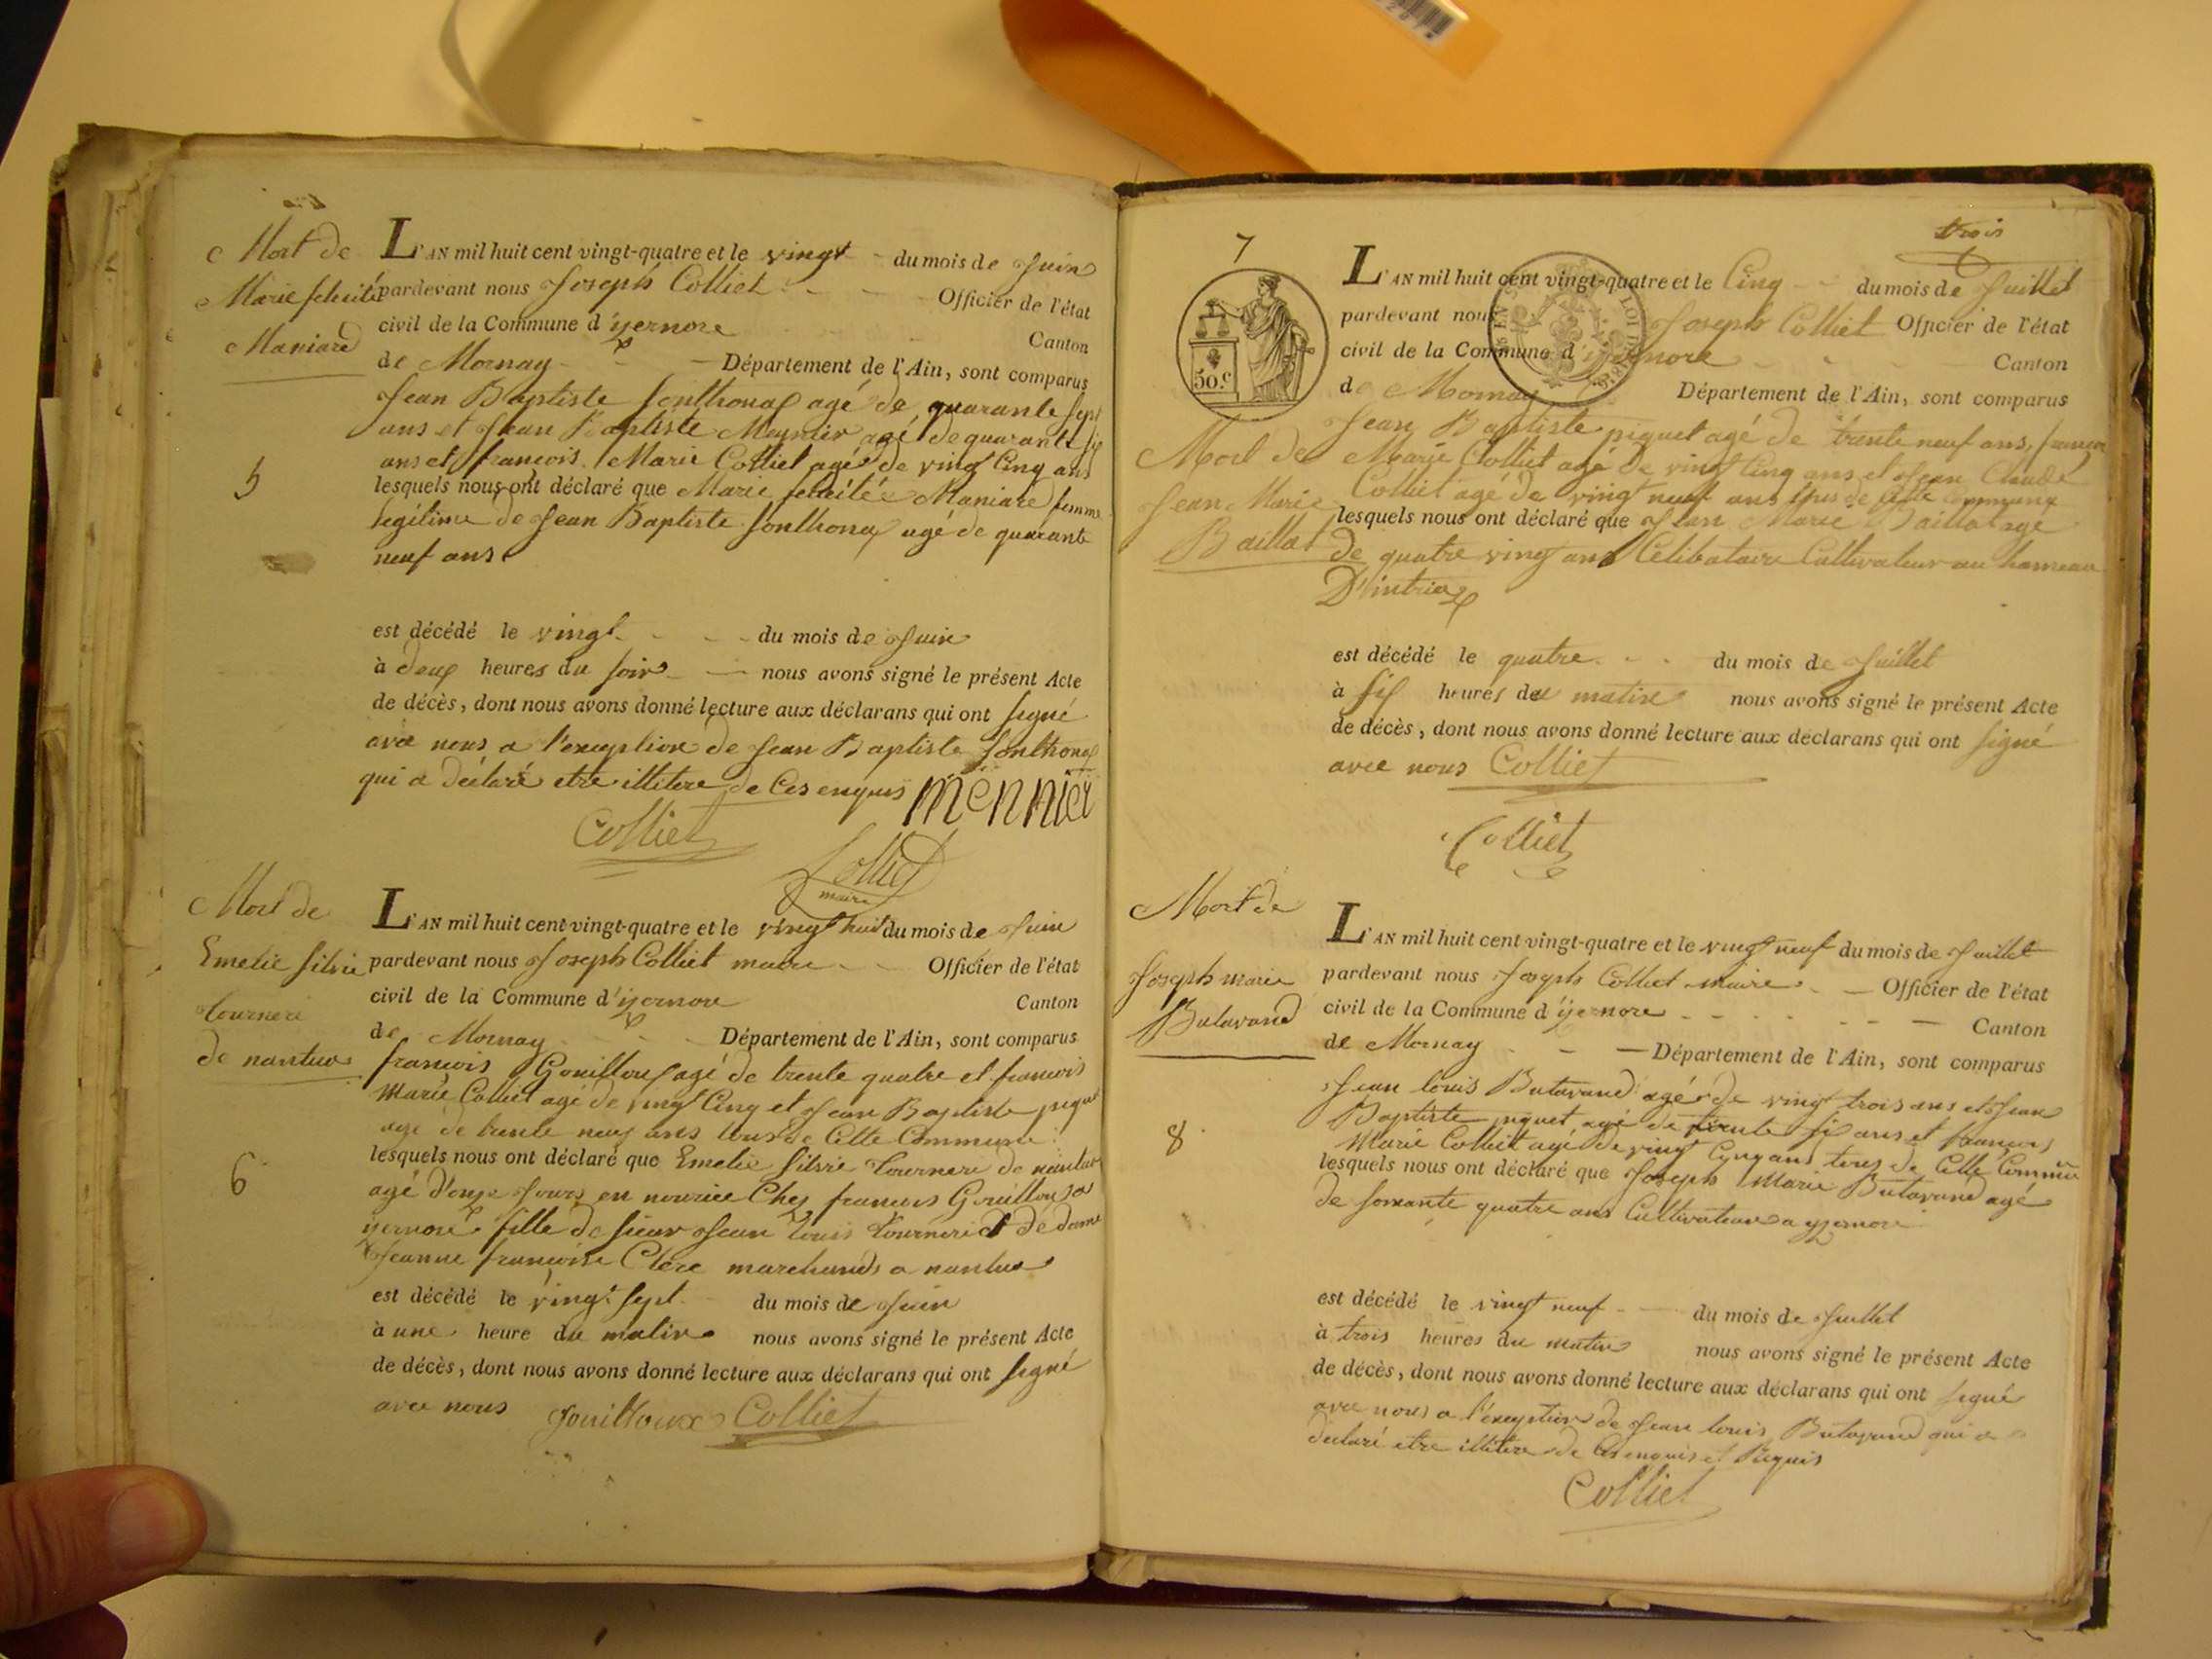 Mort de
Marie félicité
Maniard
5
L'AN mil huit cent vingt-quatre et le vingt du mois de Juin
pardevant nous Joseph Colliet Officier de l'état
civil de la Commune d'yzernore Canton
de Mornay Département de l'Ain, sont comparus
Jean Baptiste Sonthonax agé de quarante sept
ans et Jean Baptiste Meynier agé de quarante six
ans et françois Marie Colliet agé de vingt Cinq ans
lesquels nous ont déclaré que Marie félicitée Maniard femme
legitime de Jean Baptiste Sonthonax agé de quarante
neuf ans
est décédé le vingt du mois de Juin
à deux heures du soir nous avons signé le présent Acte
de décès, dont nous avons donné lecture aux déclarans qui ont signé
avec nous a l'exception de Jean Baptiste Sonthonax
qui a déclaré etre illitere de Ces enquis mennier
Colliet
Colliet
maire
Mort de
Emelie Silvie
tourneri
de nantua
6
L'AN mil huit cent vingt-quatre et le vingt huit du mois de Juin
pardevant nous Joseph Colliet maire Officier de l'état
civil de la Commune d'yzernore Canton
de Mornay Département de l'Ain, sont comparus
françois Gouilloux agé de trente quatre et françois
Marie Colliet agé de vingt Cinq et Jean Baptiste piquet
agé de trente neuf ans tous de Cette Commune
lesquels nous ont déclaré que Emelie Silvie tourneri de nantua
agé d'onze Jours en nourice Chez françois Gouilloux a
yzernore fille de sieur Jean Louis tourneri et de dame
Jeanne françoise Clerc marchands a nantua
est décédé le vingt sept du mois de Juin
à une heure du matin nous avons signé le présent Acte
de décès, dont nous avons donné lecture aux déclarans qui ont signé
avec nous Gouilloux Colliet
trois
7
50.c
Mort de
Jean Marie
Baillat
L'AN mil huit cent vingt-quatre et le Cinq du mois de Juillet
pardevant nous Joseph Colliet Officier de l'état
civil de la Commune d'yzernore Canton
de Mornay Département de l'Ain, sont comparus
Jean Baptiste piquet agé de trente neuf ans, françois
Marie Colliet agé de vingt Cinq ans et Jean Claude
Colliet agé de vingt neuf ans tous de Cette Commune
lesquels nous ont déclaré que Jean Marie Baillat agé
de quatre vingt ans Célibataire Cultivateur au hameau
D'intriax
est décédé le quatre du mois de Juillet
à six heures du matin nous avons signé le présent Acte
de décès, dont nous avons donné lecture aux déclarans qui ont signé
avec nous Colliet
Colliet
Mort de
Joseph marie
Butavand
8
L'AN mil huit cent vingt-quatre et le vingt neuf du mois de Juillet
pardevant nous Joseph Colliet maire Officier de l'état
civil de la Commune d'yzernore Canton
de Mornay Département de l'Ain, sont comparus
Jean louis Butavand agé de vingt trois ans et Jean
Baptiste piquet agé de trente six ans et françois
Marie Colliet agé de vingt Cinq ans tous de Cette Commune
lesquels nous ont déclaré que Joseph Marie Butavand agé
de soixante quatre ans Cultivateur a yzernore
est décédé le vingt neuf du mois de Juillet
à trois heures du matin nous avons signé le présent Acte
de décès, dont nous avons donné lecture aux déclarans qui ont signé
avec nous a l'exception de Jean louis Butavand qui a
déclaré etre illitere de Ces enquis et Réquis
Colliet